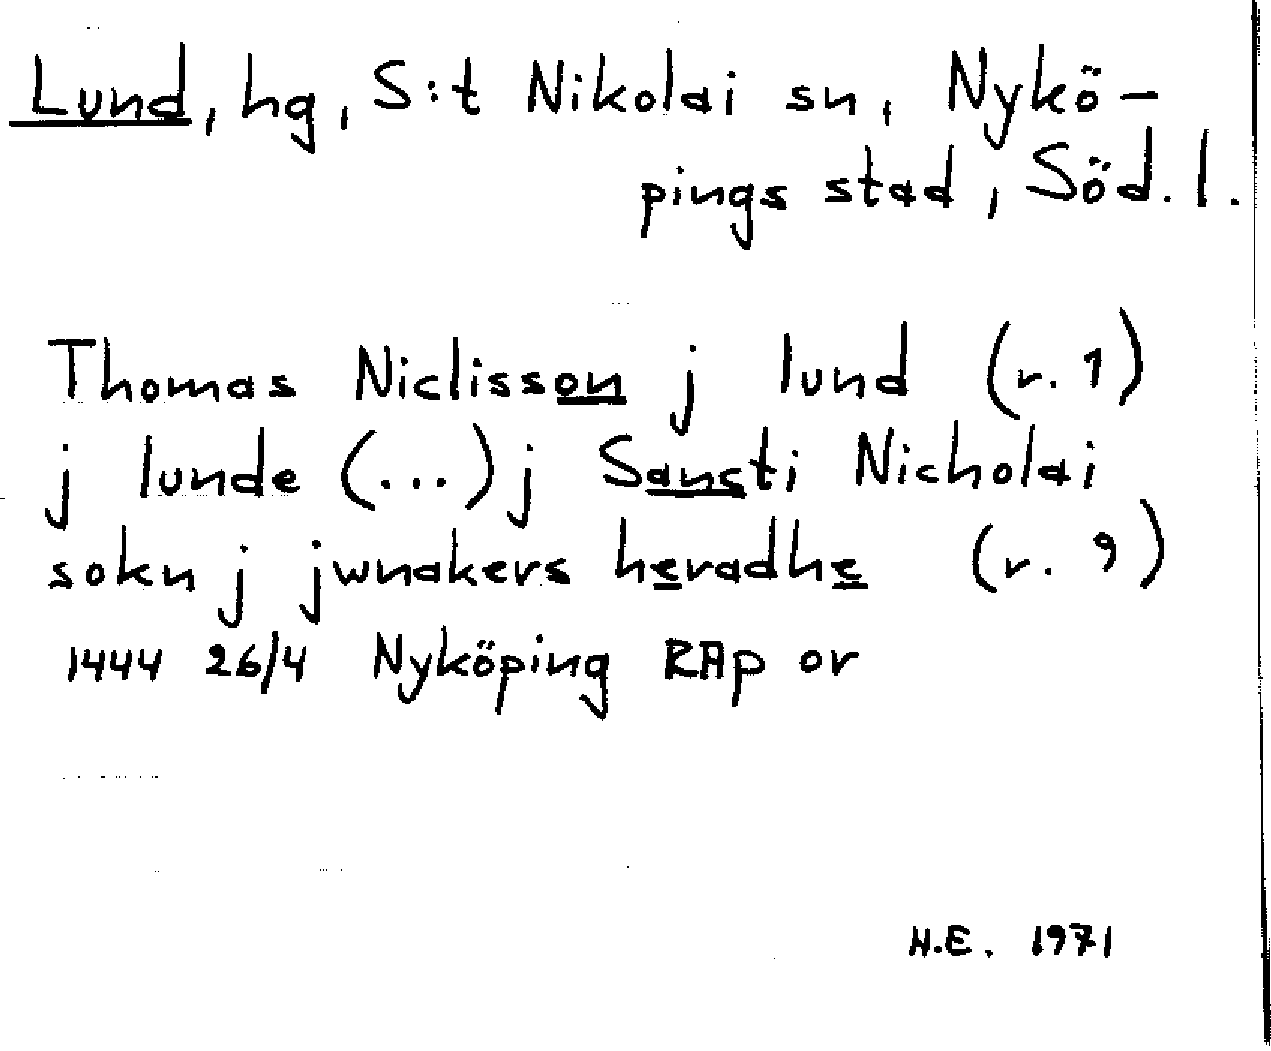 Lund, hg, S:t Nikolai sn, Nykö-
pings stad, Söd. l.
Thomas Niclisson j lund (r. 1)
j lunde (...) j Sancti Nicholai
sokn j jwnakers heradhe (r. 9)
1444 26/4 Nyköping RAp or
N.E. 1971